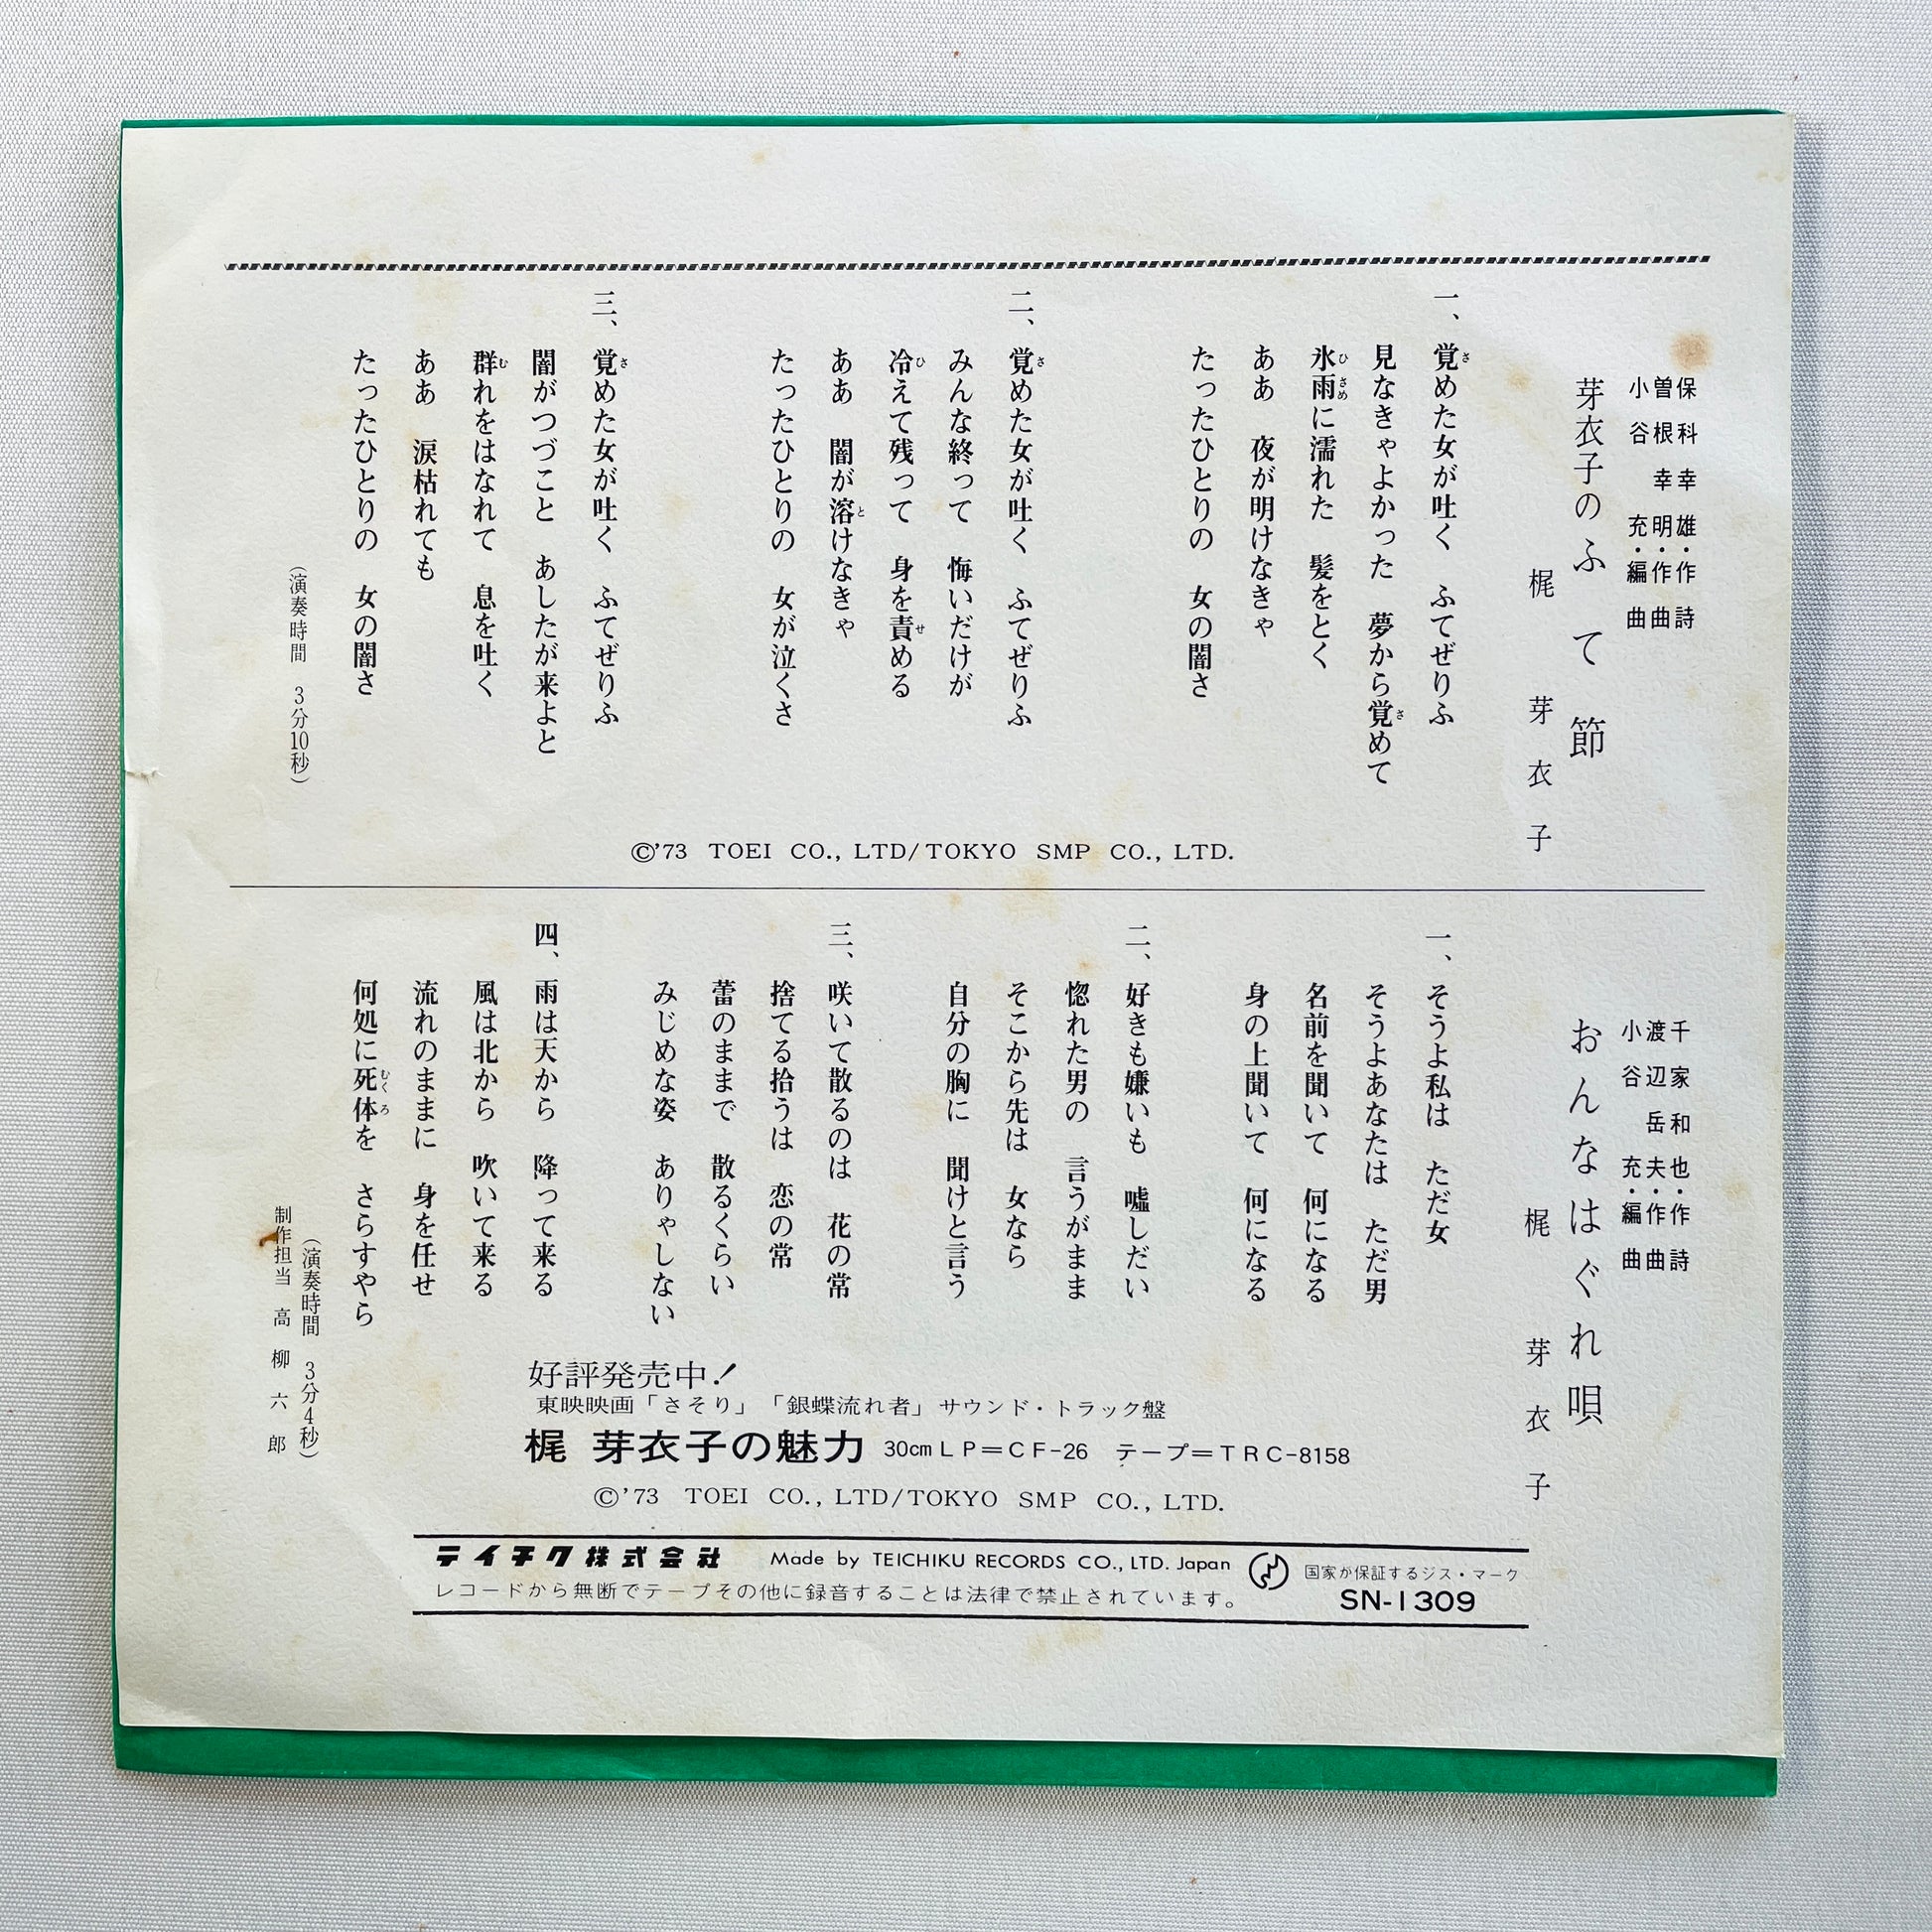 保科幸雄・作詩
曽根幸明・作曲
小谷充・編曲
芽衣子のふて節
梶芽衣子
一、覚めた女が吐く　ふてぜりふ
見なきゃよかった　夢から覚めて
氷雨に濡れた　髪をとく
ああ　夜が明けなきゃ
たったひとりの　女の闇さ
二、覚めた女が吐く　ふてぜりふ
みんな終って　悔いだけが
冷えて残って　身を責める
ああ　闇が溶けなきゃ
たったひとりの　女が泣くさ
三、覚めた女が吐く　ふてぜりふ
闇がつづこと　あしたが来よと
群れをはなれて　息を吐く
ああ　涙枯れても
たったひとりの　女の闇さ
（演奏時間　3分10秒）
©'73 TOEI CO., LTD/TOKYO SMP CO., LTD.
千家和也・作詩
渡辺岳夫・作曲
小谷充・編曲
おんなはぐれ唄
梶芽衣子
一、そうよ私は　ただ女
そうよあなたは　ただ男
名前を聞いて　何になる
身の上聞いて　何になる
二、好きも嫌いも　嘘しだい
惚れた男の　言うがまま
そこから先は　女なら
自分の胸に　聞けと言う
三、咲いて散るのは　花の常
捨てる拾うは　恋の常
蕾のままで　散るくらい
みじめな姿　ありゃしない
四、雨は天から　降って来る
風は北から　吹いて来る
流れのままに　身を任せ
何処に死体を　さらすやら
（演奏時間　3分4秒）
制作担当　高柳六郎
好評発売中！
東映映画「さそり」「銀蝶流れ者」サウンド・トラック盤
梶　芽衣子の魅力　30cmLP＝CF-26　テープ＝TRC-8158
©'73 TOEI CO., LTD/TOKYO SMP CO., LTD.
テイチク株式会社　Made by TEICHIKU RECORDS CO., LTD. Japan
レコードから無断でテープその他に録音することは法律で禁止されています。
国家が保証するジス・マーク
SN-1309